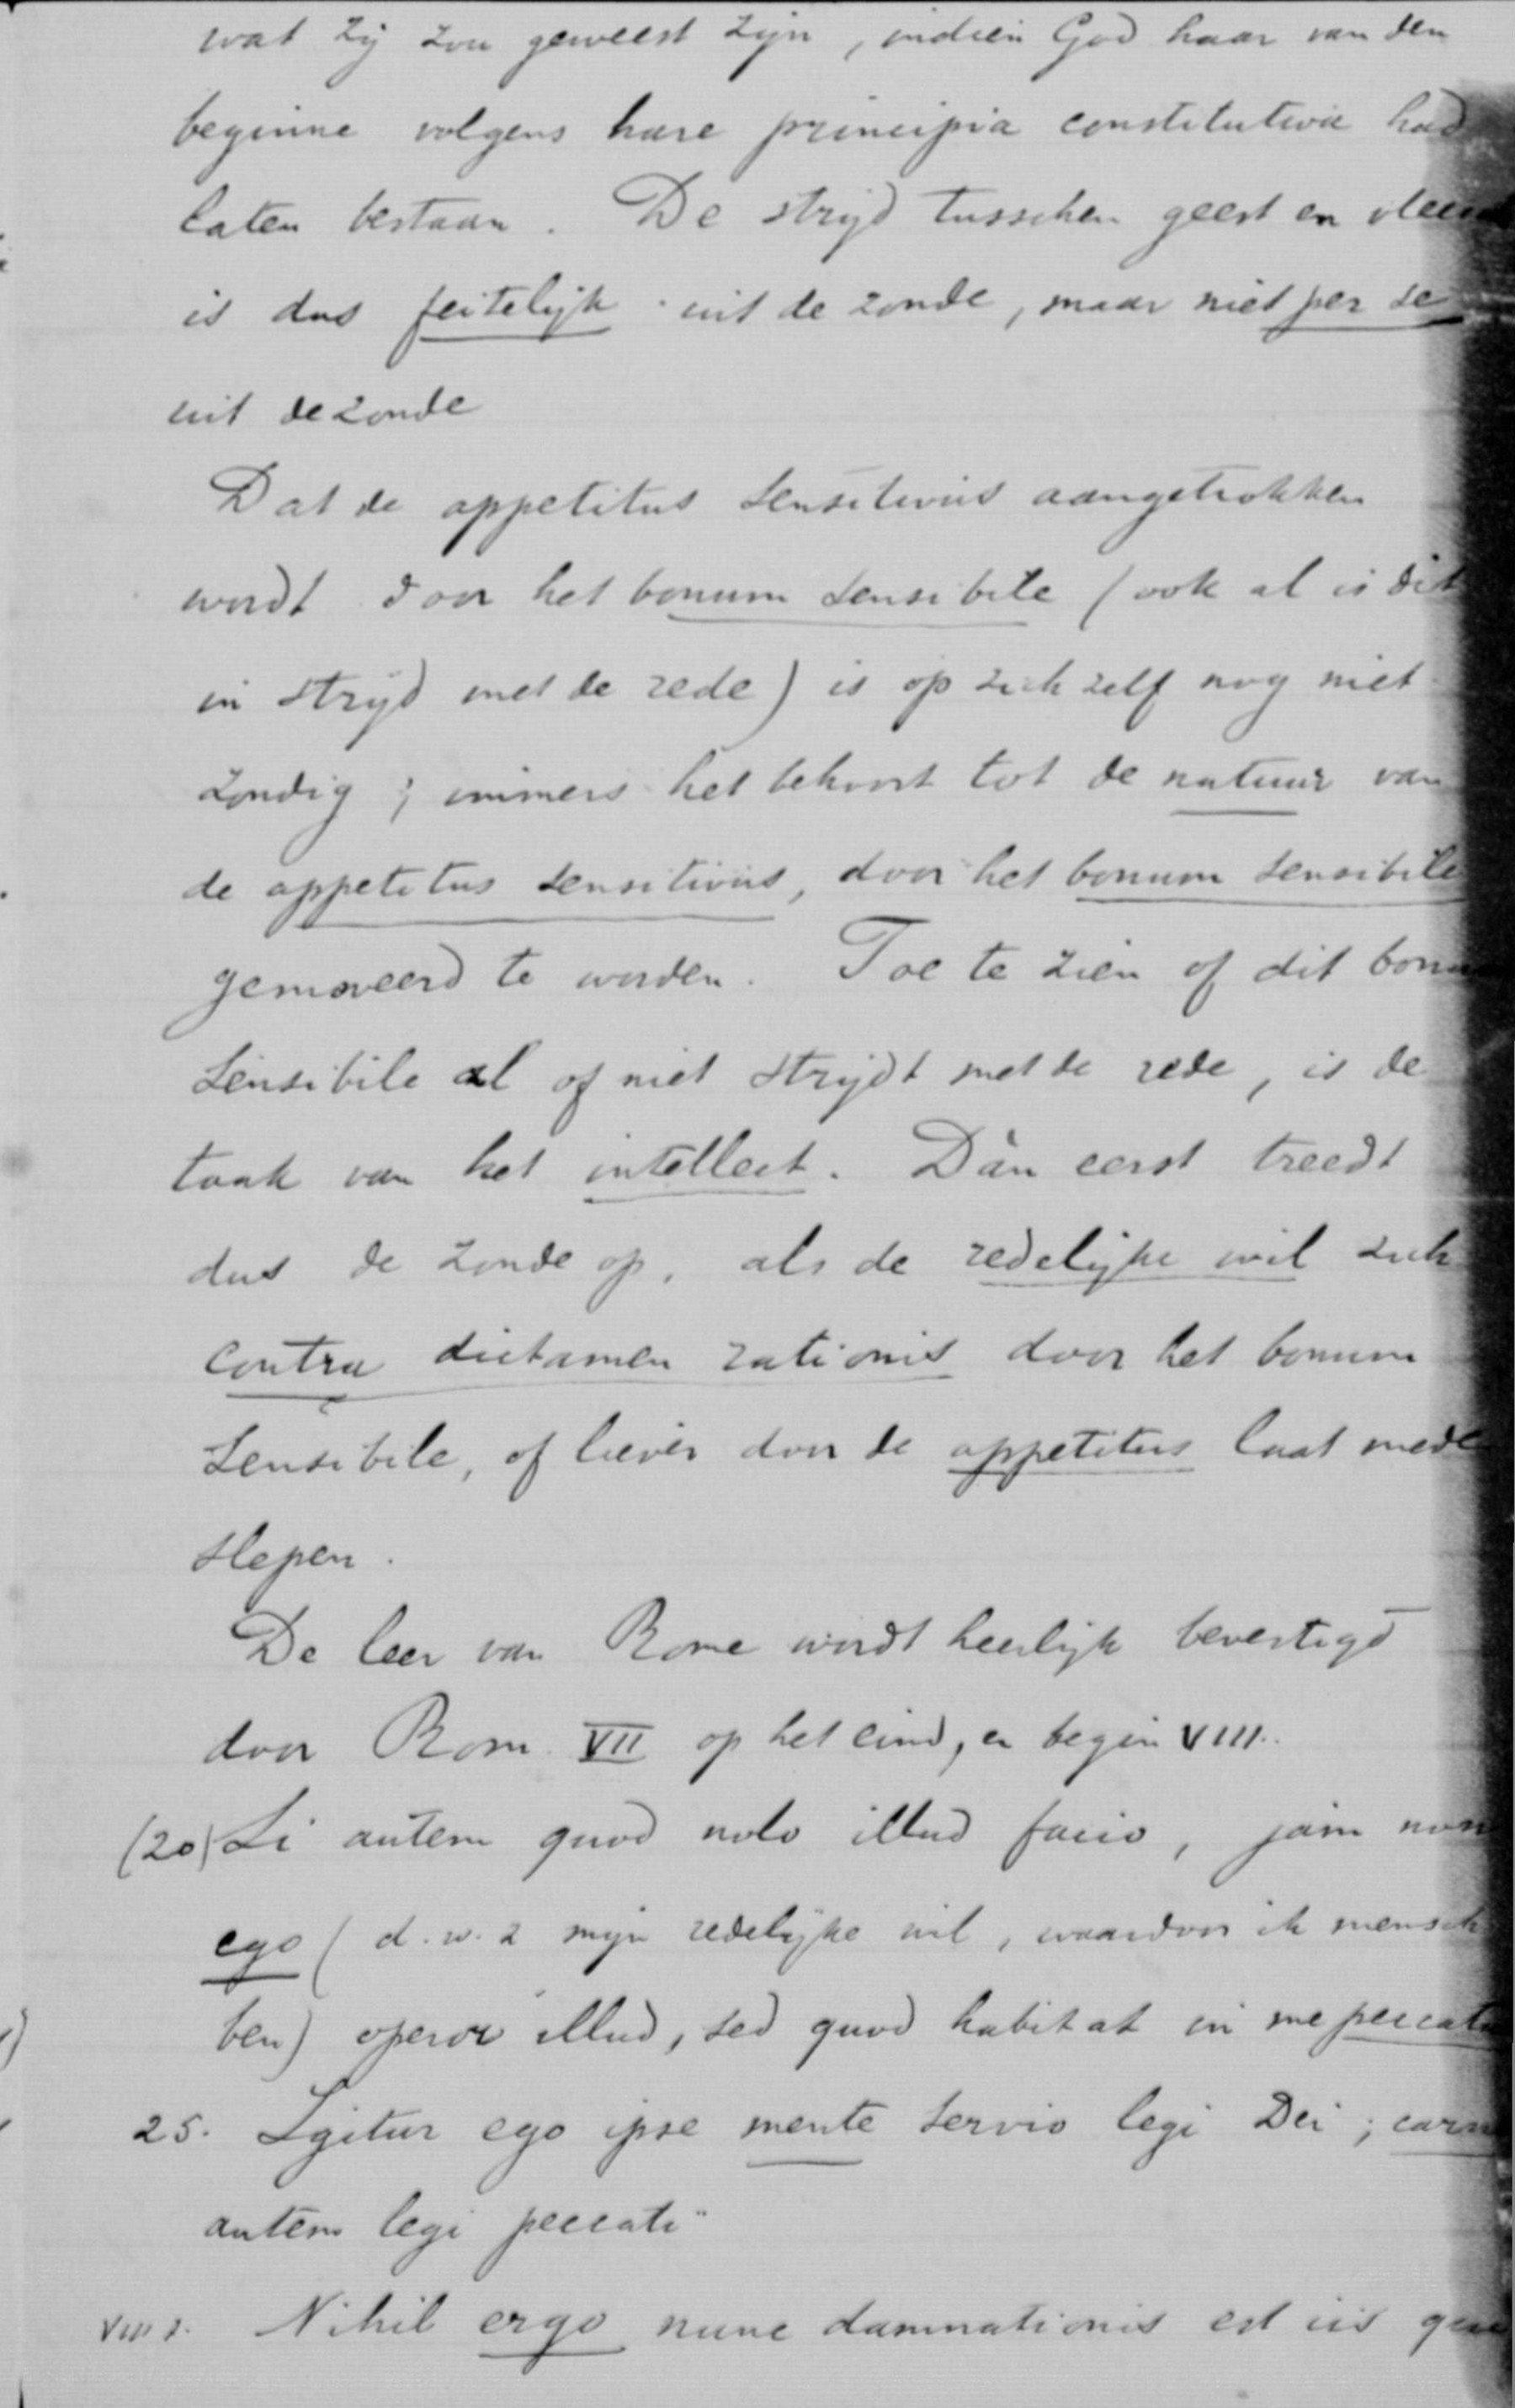 wat zij zou geweest zijn, indien God haar van den
beginne volgens hare principia constitutiva had
laten bestaan. De strijd tusschen geest en vlees
is dus feitelijk uit de zonde, maar niet per se
uit de zonde
Dat de appetitus sensitivus aangetrokken
wordt door het bonum sensibile (ook al is dit
in strijd met de rede) is op zich zelf nog niet
zondig; immers het behoort tot de natuur van
de appetitus sensitivus, door het bonum sensibile
gemoveerd te worden. Toe te zien of dit bonu
sensibile al of niet strijdt met de rede, is de
taak van het intellect. Dàn eerst treedt
dus de zonde op, als de redelijke wil zich
contra dictamen rationis door het bonum
sensibile, of liever door de appetitus laat mede
slepen.
De leer van Rome wordt heerlijk bevestigd
door Rom. VII op het eind, en begin VIII.
(20) Si autem quod nolo illud facio, jam non
ego (d.w.z mijn redelijke wil, waardoor ik mensch
ben) operor illud, sed quod habitat in me peccatu
25. Igitur ego ipse mente servio legi Dei; carn
autem legi peccati"
VIII 1. Nihil ergo nunc damnationis est iis qui